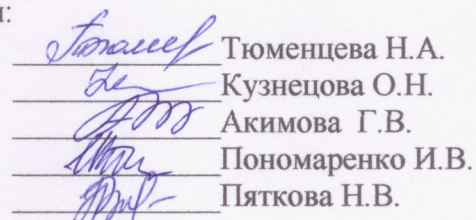 Тюменцева Н.А.
Кузнецова О.Н.
Акимова Г.В.
Пономаренко И.В.
Пяткова Н.В.